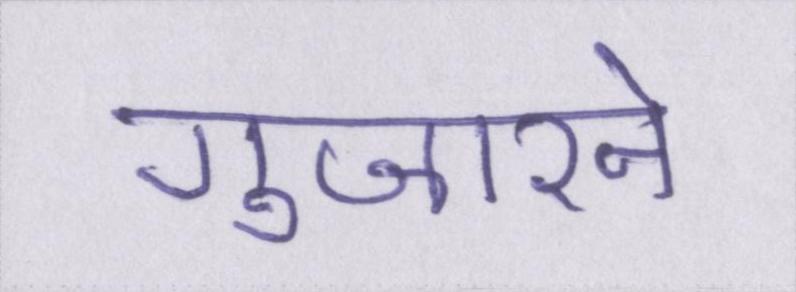 गुजारने